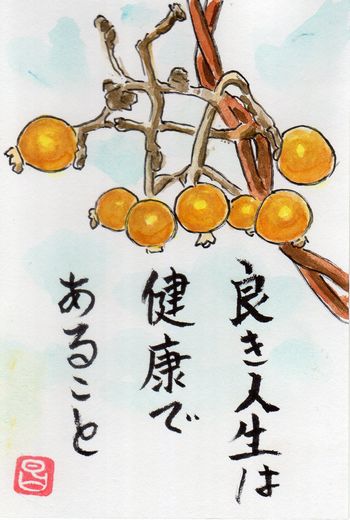 良き人生は
健康で
あること